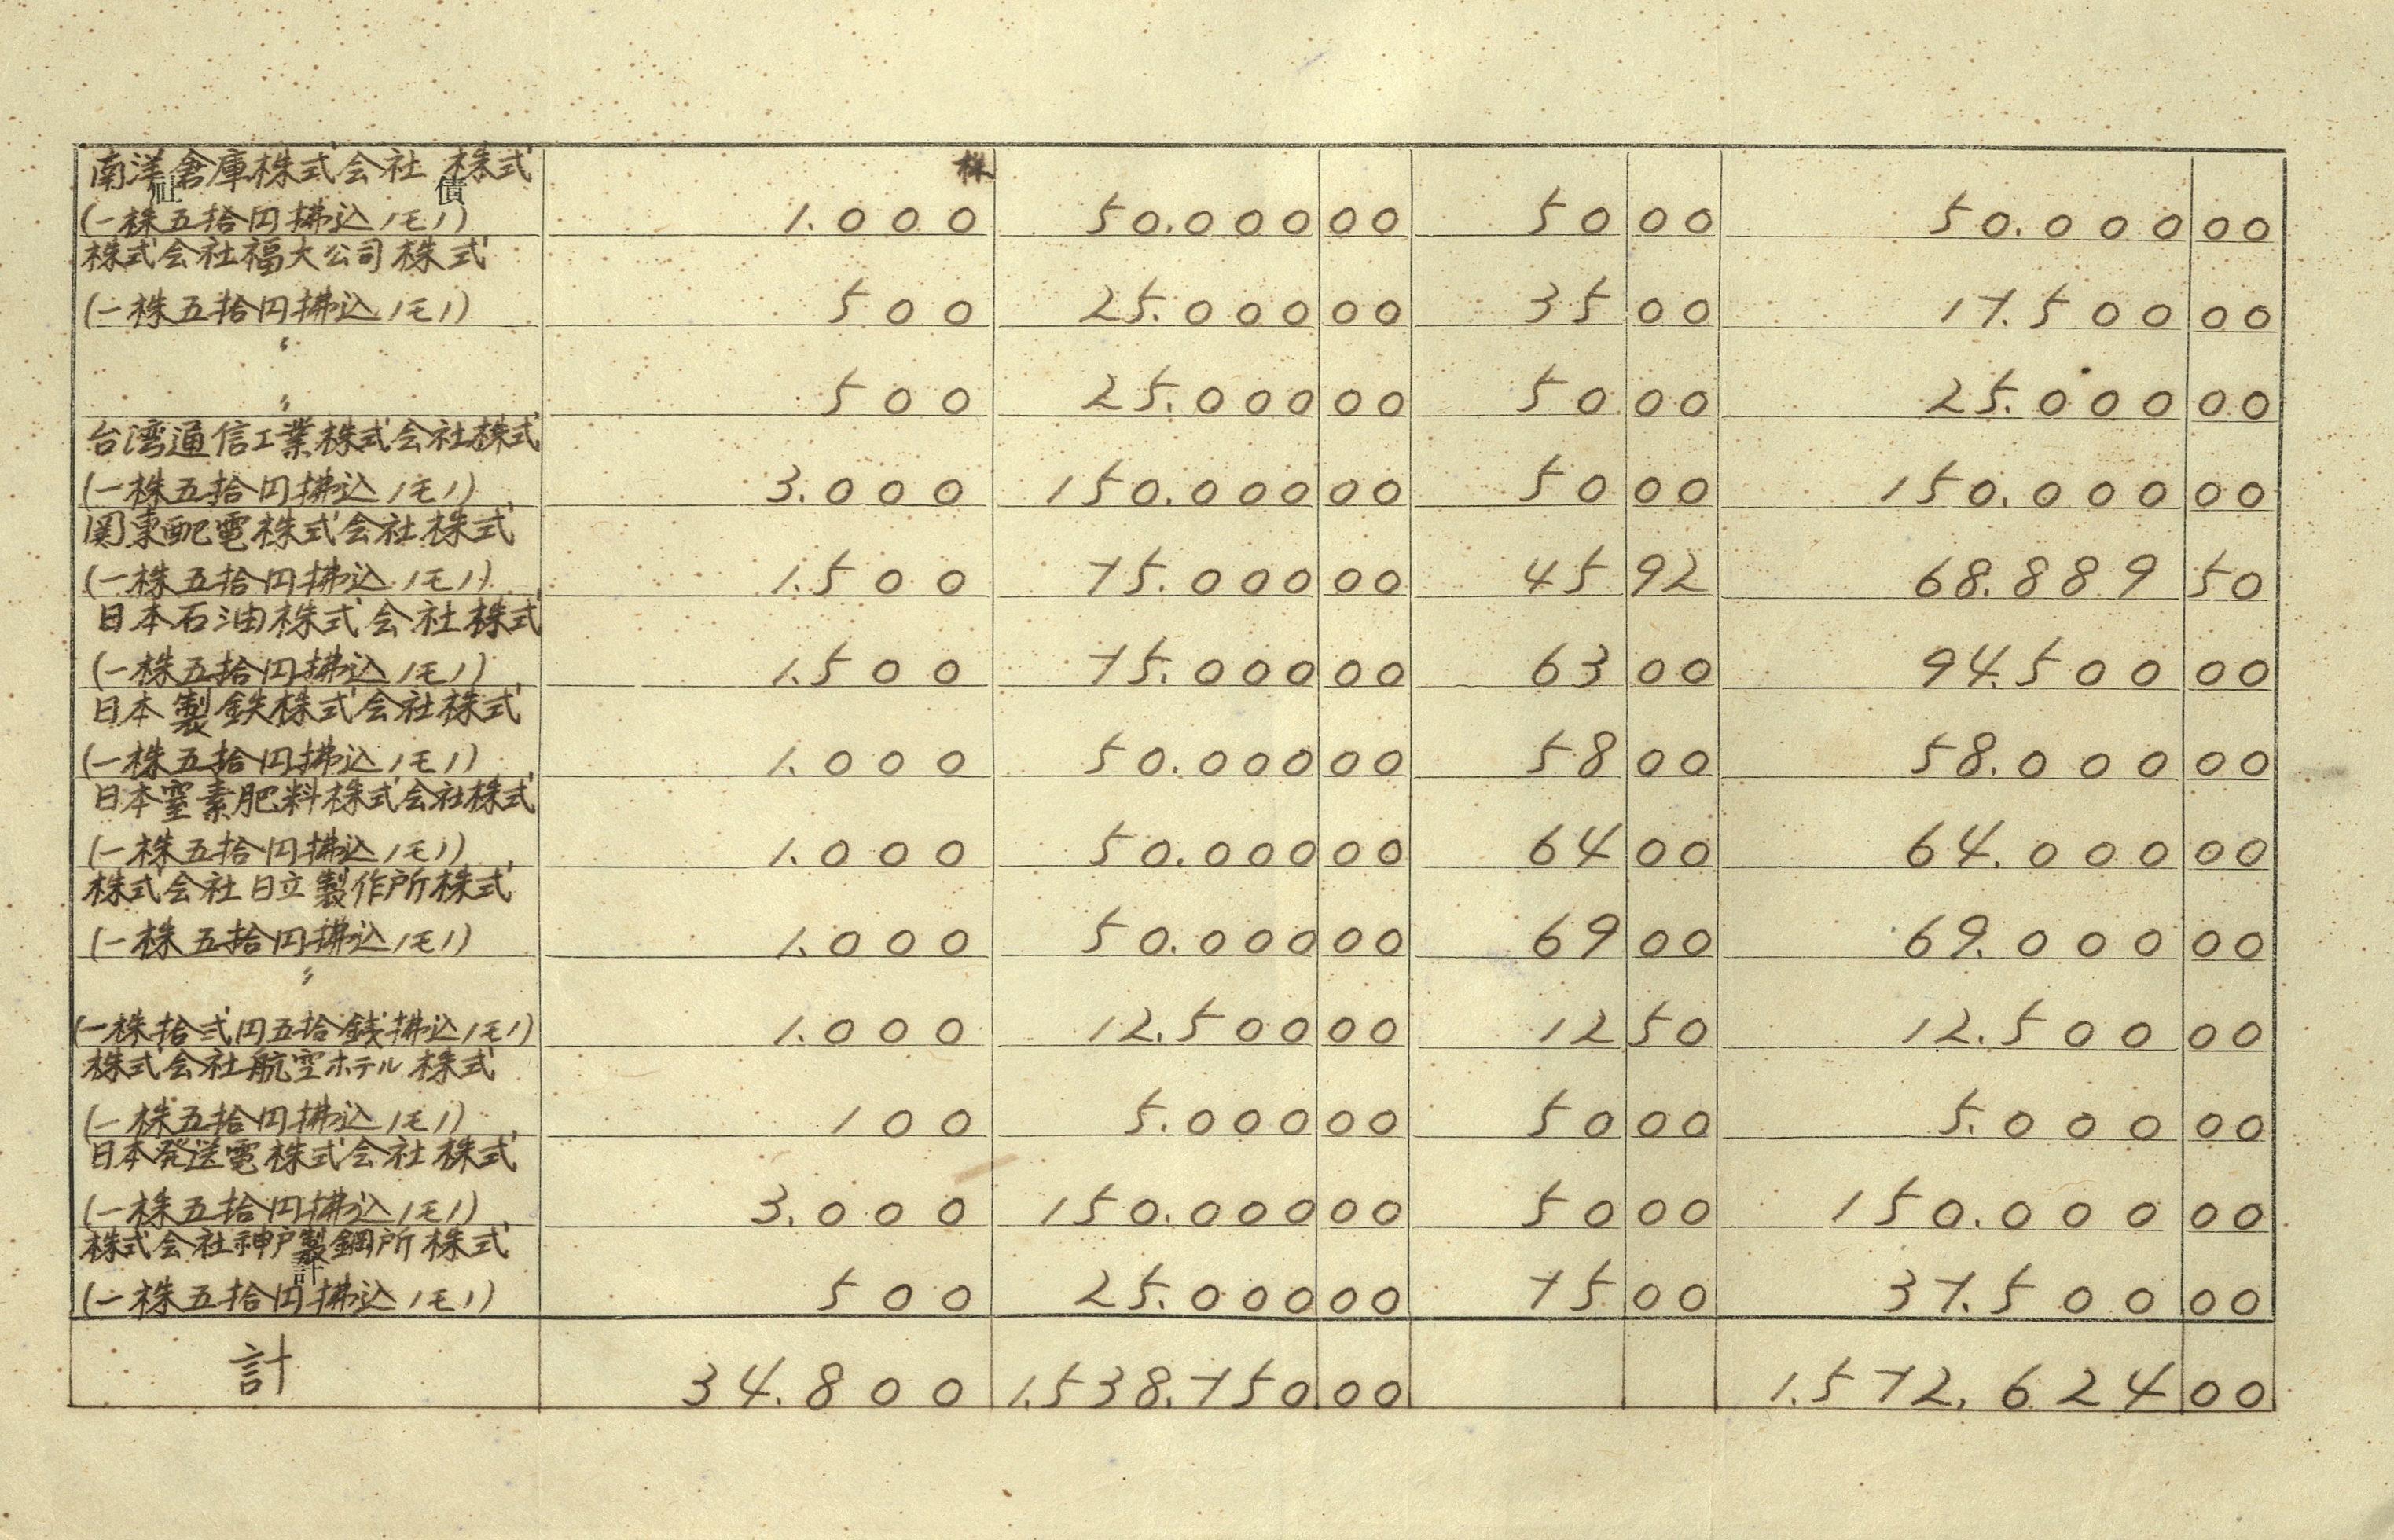 南洋倉庫株式会社 株式 株
社 債
(一株五拾円拂込ノモノ) 1.000 50.000 00 50 00 50.000 00
株式会社福大公司株式
(一株五拾円拂込ノモノ) 500 25.000 00 35 00 17.500 00
〃
〃 500 25.000 00 50 00 25.000 00
台湾通信工業株式会社株式
(一株五拾円拂込ノモノ) 3.000 150.000 00 50 00 150.000 00
関東配電株式会社株式
(一株五拾円拂込ノモノ) 1.500 75.000 00 45 92 68.889 50
日本石油株式会社株式
(一株五拾円拂込ノモノ) 1.500 75.000 00 63 00 94.500 00
日本製鉄株式会社株式
(一株五拾円拂込ノモノ) 1.000 50.000 00 58 00 58.000 00
日本窒素肥料株式会社株式
(一株五拾円拂込ノモノ) 1.000 50.000 00 64 00 64.000 00
株式会社日立製作所株式
(一株五拾円拂込ノモノ) 1.000 50.000 00 69 00 69.000 00
〃
(一株拾弐円五拾銭拂込ノモノ) 1.000 12.500 00 12 50 12.500 00
株式会社航空ホテル株式
(一株五拾円拂込ノモノ) 100 5.000 00 50 00 5.000 00
日本発送電株式会社株式
(一株五拾円拂込ノモノ) 3.000 150.000 00 50 00 150.000 00
株式会社神戸製鋼所株式
計
(一株五拾円拂込ノモノ) 500 25.000 00 75 00 37.500 00
計 34.800 1.538.750 00 1.572.624 00